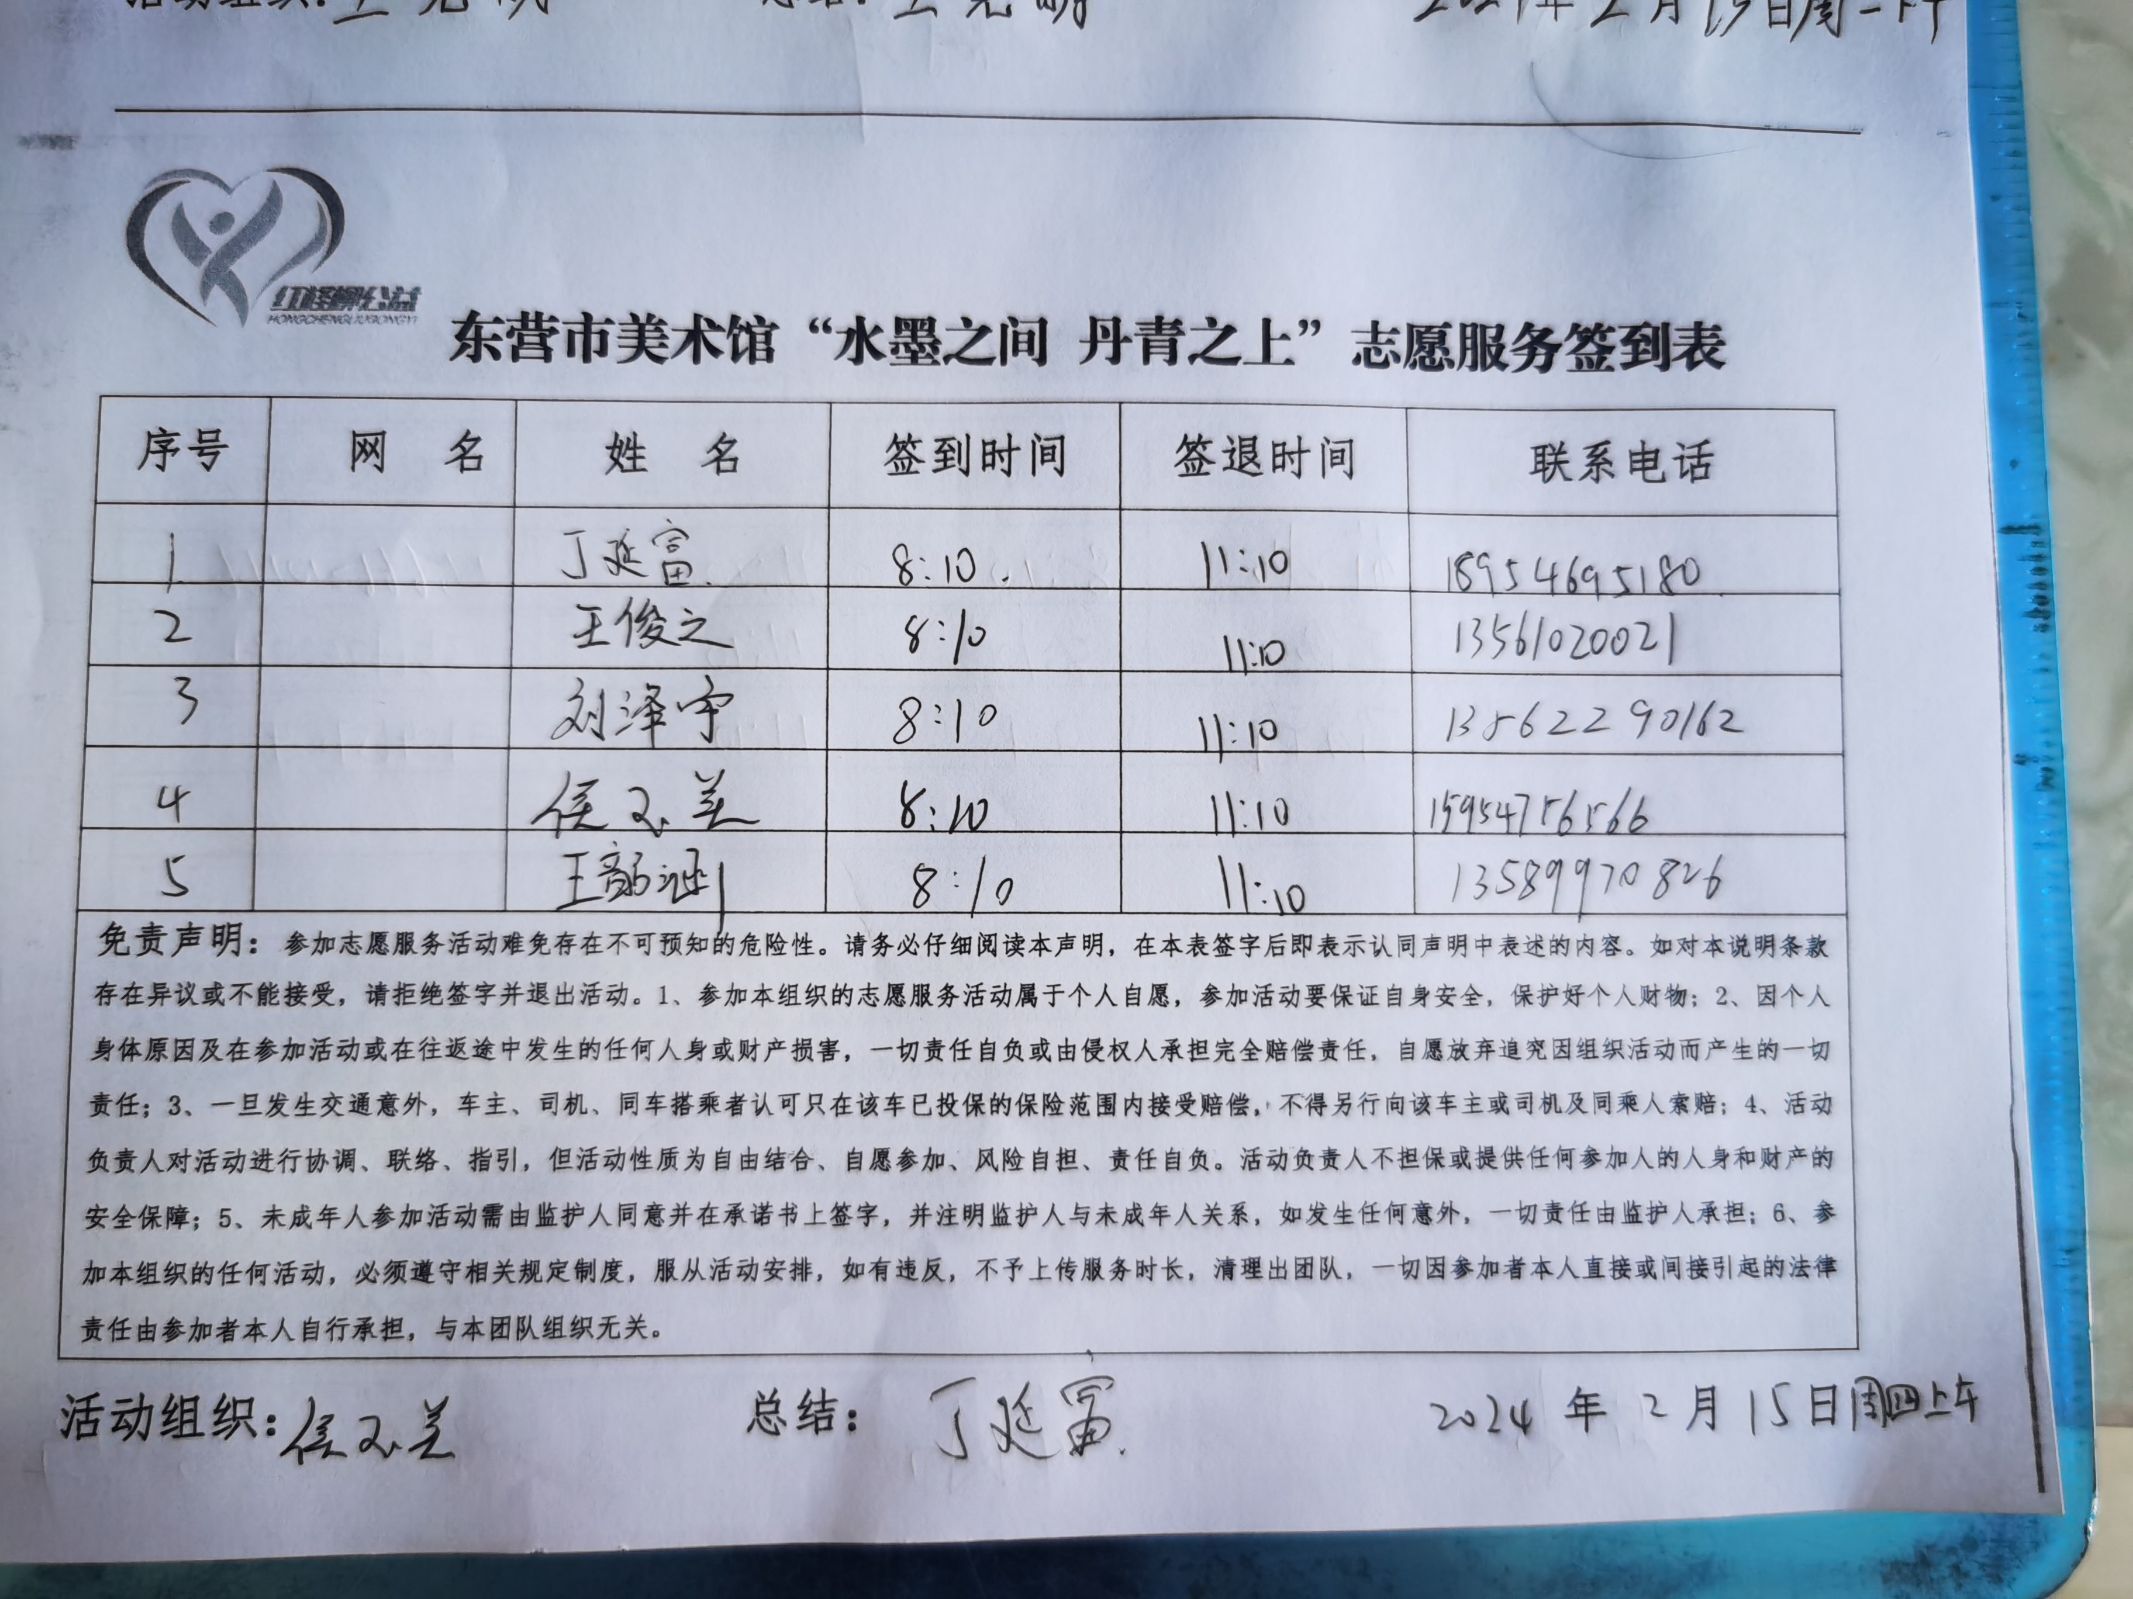 2024年2月15日周一下午
红柽柳公益
HONGCHENGLIUGONGYI
东营市美术馆“水墨之间 丹青之上”志愿服务签到表
序号 网 名 姓 名 签到时间 签退时间 联系电话
1 丁延富 8:10 11:10 18954695180
2 王俊之 8:10 11:10 13561020021
3 刘泽宇 8:10 11:10 13562290162
4 侯玉美 8:10 11:10 15954756566
5 王韵涵 8:10 11:10 13589970826
免责声明：参加志愿服务活动难免存在不可预知的危险性。请务必仔细阅读本声明，在本表签字后即表示认同声明中表述的内容。如对本说明条款
存在异议或不能接受，请拒绝签字并退出活动。1、参加本组织的志愿服务活动属于个人自愿，参加活动要保证自身安全，保护好个人财物；2、因个人
身体原因及在参加活动或在往返途中发生的任何人身或财产损害，一切责任自负或由侵权人承担完全赔偿责任，自愿放弃追究因组织活动而产生的一切
责任；3、一旦发生交通意外，车主、司机、同车搭乘者认可只在该车已投保的保险范围内接受赔偿，不得另行向该车主或司机及同乘人索赔；4、活动
负责人对活动进行协调、联络、指引，但活动性质为自由结合、自愿参加、风险自担、责任自负。活动负责人不担保或提供任何参加人的人身和财产的
安全保障；5、未成年人参加活动需由监护人同意并在承诺书上签字，并注明监护人与未成年人关系，如发生任何意外，一切责任由监护人承担；6、参
加本组织的任何活动，必须遵守相关规定制度，服从活动安排，如有违反，不予上传服务时长，清理出团队，一切因参加者本人直接或间接引起的法律
责任由参加者本人自行承担，与本团队组织无关。
活动组织：侯玉美 总结：丁延富 2024 年 2 月 15 日周四上午